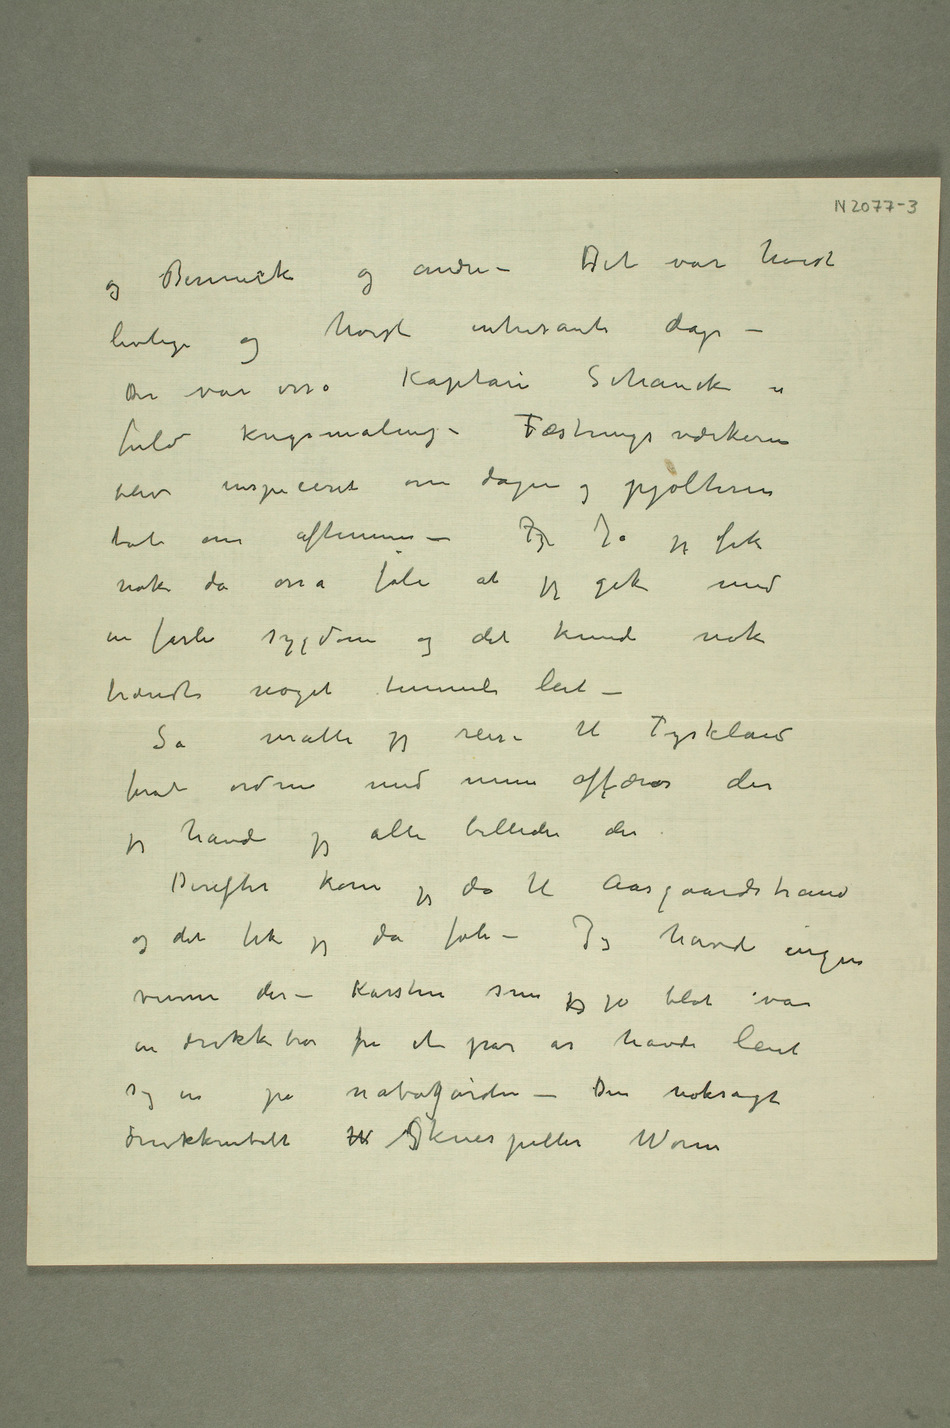 N 2077-3
og Bernick og andre – Det var høist
livlige og høist intresante dage –
Der var osså Kaptain Schanck i
fuld krigsmaling – Fæstningsværkerne
blev inspiceret om dagen og pjolterne
talt om aftenen – Jo jeg fik
nok da osså føle at jeg gik med
en farlig sygdom og det kunde nok
hændt noget temmelig leit –
Så måtte jeg reise til Tyskland
forat ordne med mine affærer der
jeg havde jeg alle billeder der
Derefter kom jeg da til Aasgaardstrand
og det fik jeg da føle – Jeg havde ingen
venner der – Karsten som jeg jo blot var
en drikkebror fra et par år havde leiet
sig en på nabogården – Den noksagt
drukkenbolt Skuespiller Worm